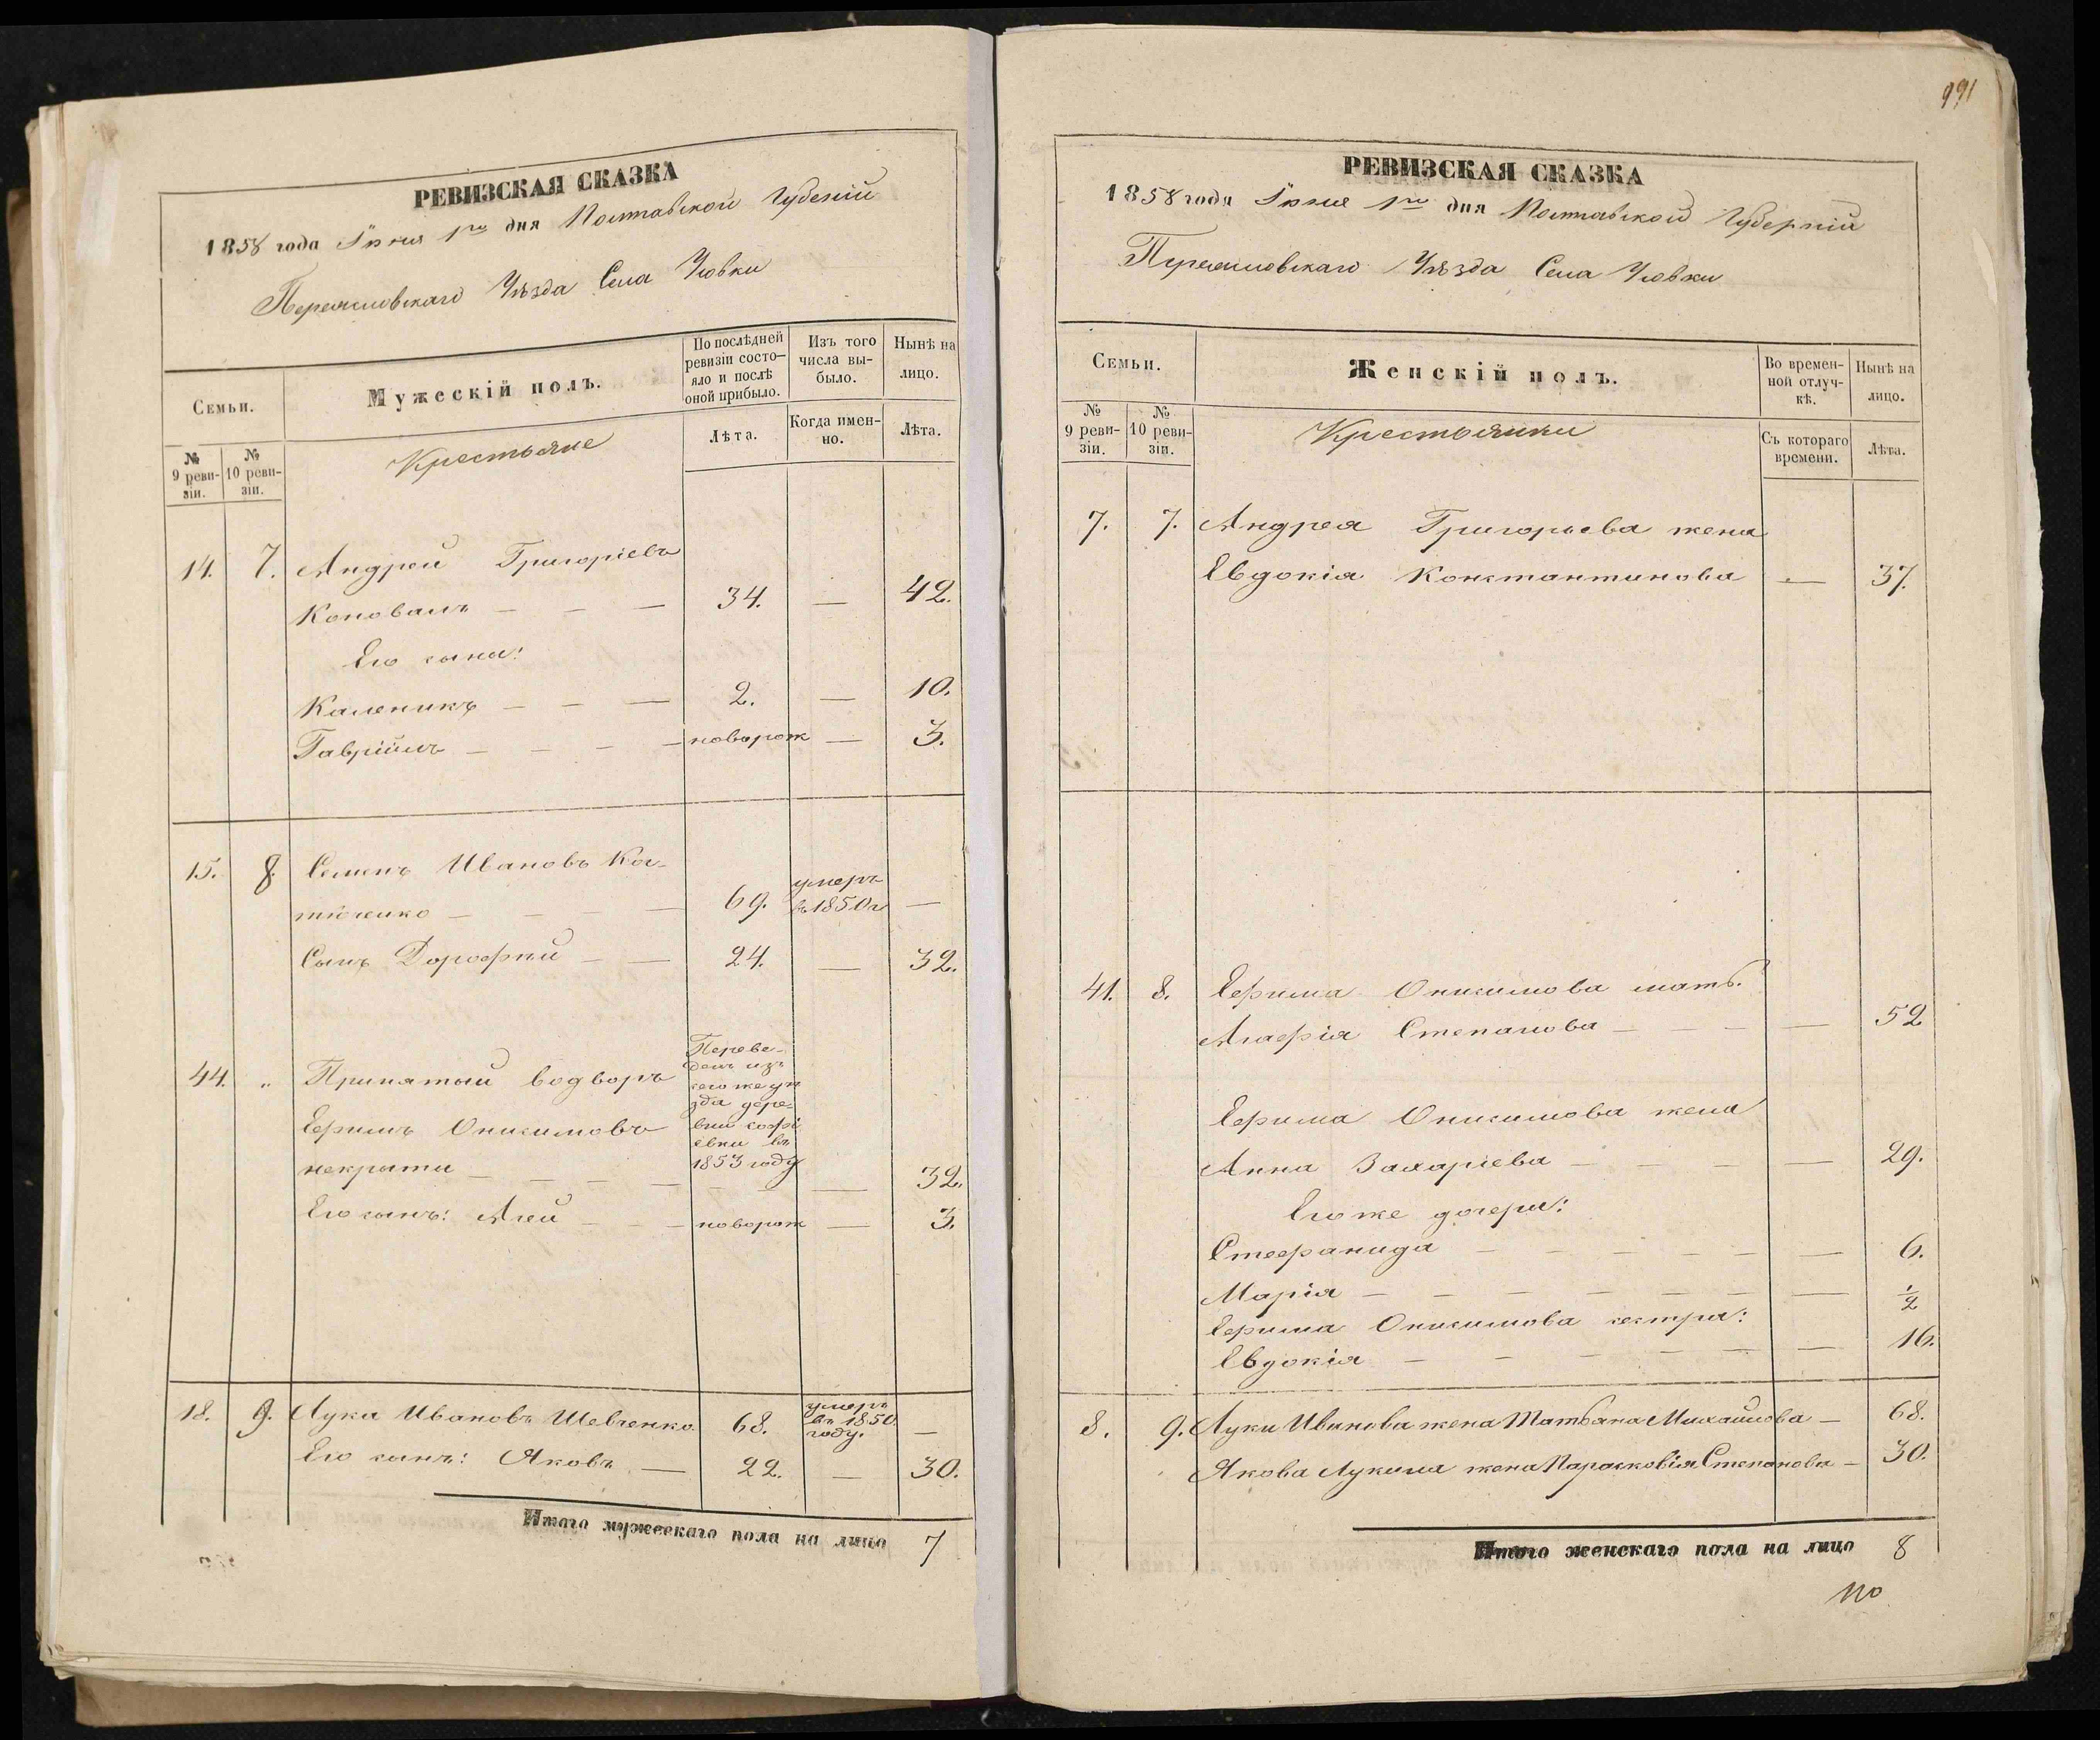 РЕВИЗСКАЯ СКАЗКА
1858 года Іюня 1го дня Полтавской Губерніи
Переяславскаго Уѣзда Села
Семьи.
Мужескій полъ.
По послѣдней ревизіи состо-
яло и послѣ оной прибыло.
Изъ того числа вы-
было.
Нынѣ на лицо.
№ 9 реви-
зіи.
№ 10 реви-
зіи.
Крестьяне
Лѣта.
Когда имен-
но.
Лѣта.
14. 7. Андрей Григоріевъ
Коновалъ — — — 34. — 42.
Его сыны:
Каленикъ — — — 2. — 10.
Гавріилъ — — — — новорож — 3.
15. 8. Семенъ Ивановъ Кос-
тюченко — — — — 69. умеръ въ 1850 г —
Сынъ Дорофей — — 24. — 32.
44. „ Принятый водворъ
Ефимъ Онисимовъ
некрыти — — — — — — — 32.
Переве-
денъ изъ
сего же уѣ
зда дере-
вни софі
евки въ
1853 году
Его сынъ: — — — новорож — 3.
18. 9. Лука Ивановъ Шевченко. 68. умеръ въ 1850 году. —
Его сынъ: Яковъ — 22. — 30.
Итого мужескаго пола на лицо 7
991
РЕВИЗСКАЯ СКАЗКА
1858 года Іюня 1го дня Полтавской Губерніи
Переяславскаго Уѣзда Села
Семьи.
Женскій полъ.
Во времен-
ной отлуч-
кѣ.
Нынѣ на лицо.
№ 9 реви-
зіи.
№ 10 реви-
зіи.
Крестьянки
Съ котораго времени.
Лѣта.
7. 7. Андрея Григорьева жена
Евдокія Константинова — 37.
41. 8. Ефима Онисимова мать.
Агафія Степанова — — — — 52
Ефима Онисимова жена
Анна Захаріева — — — — 29.
Его же дочери:
Стефанида — — — — — — 6.
Марія — — — — — — — ½
Ефима Онисимова сестра:
Евдокія — — — — — — — 16.
8. 9. Луки Иванова жена Татьяна Михайлова — 68.
Якова Лукина жена Парасковія Степанова — 30.
Итого женскаго пола на лицо 8